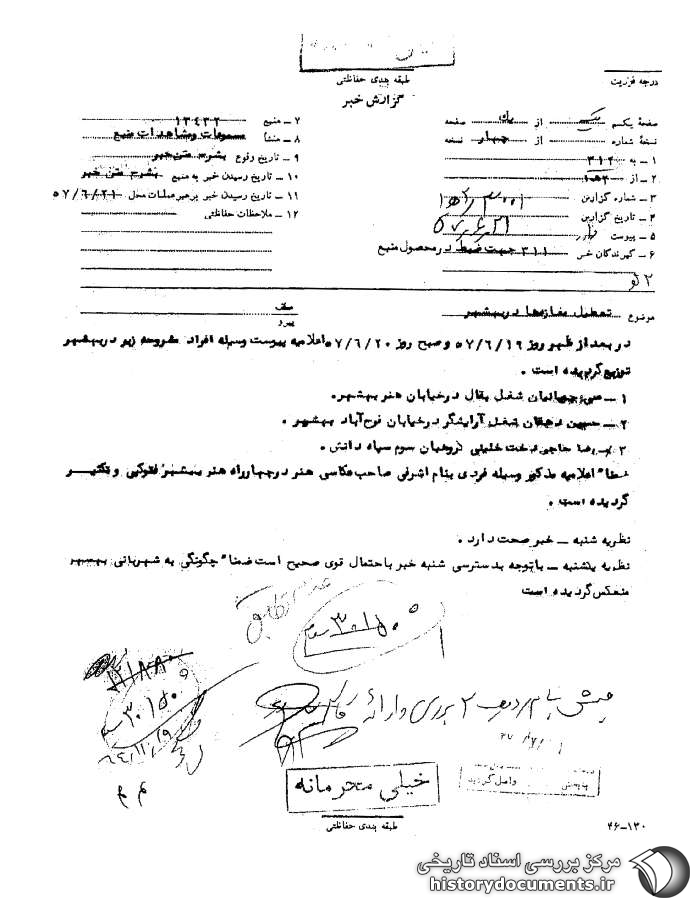 طبقه بندی حفاظتی
درجه فوریت
گزارش خبر
صفحه یکم یک از یک صفحه
نسخه شماره از چهار نسخه
۱ – به ۳۱۲
۲ – از
۳ – شماره گزارش
۴ – تاریخ گزارش
۵ – پیوست دارد
۶ – گیرندگان خبر ۳۱۱ جهت ضبط در محصول منبع
۷ – منبع ۱۳۴۳۲
۸ – منشأ مسموعات و مشاهدات منبع
۹ – تاریخ وقوع بشرح متن خبر
۱۰ – تاریخ رسیدن خبر به منبع بشرح متن خبر
۱۱ – تاریخ رسیدن خبر برهبر عملیات محل ۵۷/۶/۲۱
۱۲ – ملاحظات حفاظتی
موضوع تعطیل مغازه‌ها در بهشهر
عطف
پیرو
در بعد از ظهر روز ۵۷/۶/۱۹ و صبح روز ۵۷/۶/۲۰ اعلامیه پیوست وسیله افراد مشروحه زیر در بهشهر
توزیع گردیده است .
۱ – جهانیان شغل بقال در خیابان هنر بهشهر.
۲ – حسین دهقان شغل آرایشگر در خیابان فرح‌آباد بهشهر .
۳ – رضا حاجی دخت خلیلی گروهبان سوم سپاه دانش .
ضمنا" اعلامیه مذکور وسیله فردی بنام اشرفی صاحب عکاسی هنر در چهارراه هنر بهشهر فتوکپی و تکثیر
گردیده است .
نظریه شنبه – خبر صحت دارد .
نظریه یکشنبه – باتوجه بدسترسی شنبه خبر باحتمال قوی صحیح است ضمنا" چگونگی به شهربانی بهشهر
منعکس گردیده است
۳۰۱۵۰
۳۰۱۵۰
خیلی محرمانه
طبقه بندی حفاظتی
۴۶–۱۳۰
مرکز بررسی اسناد تاریخی
historydocuments.ir